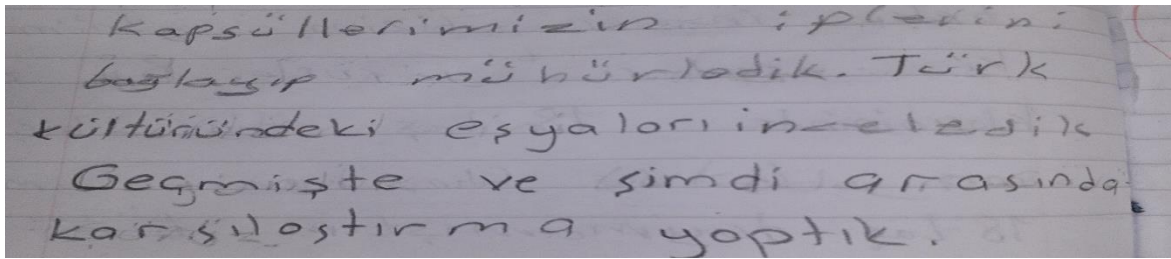 Kapsüllerimizin iplerini
bağlayıp mühürledik. Türk
kültüründeki eşyaları inceledik
Geçmişte ve şimdi arasında
karşılaştırma yaptık.